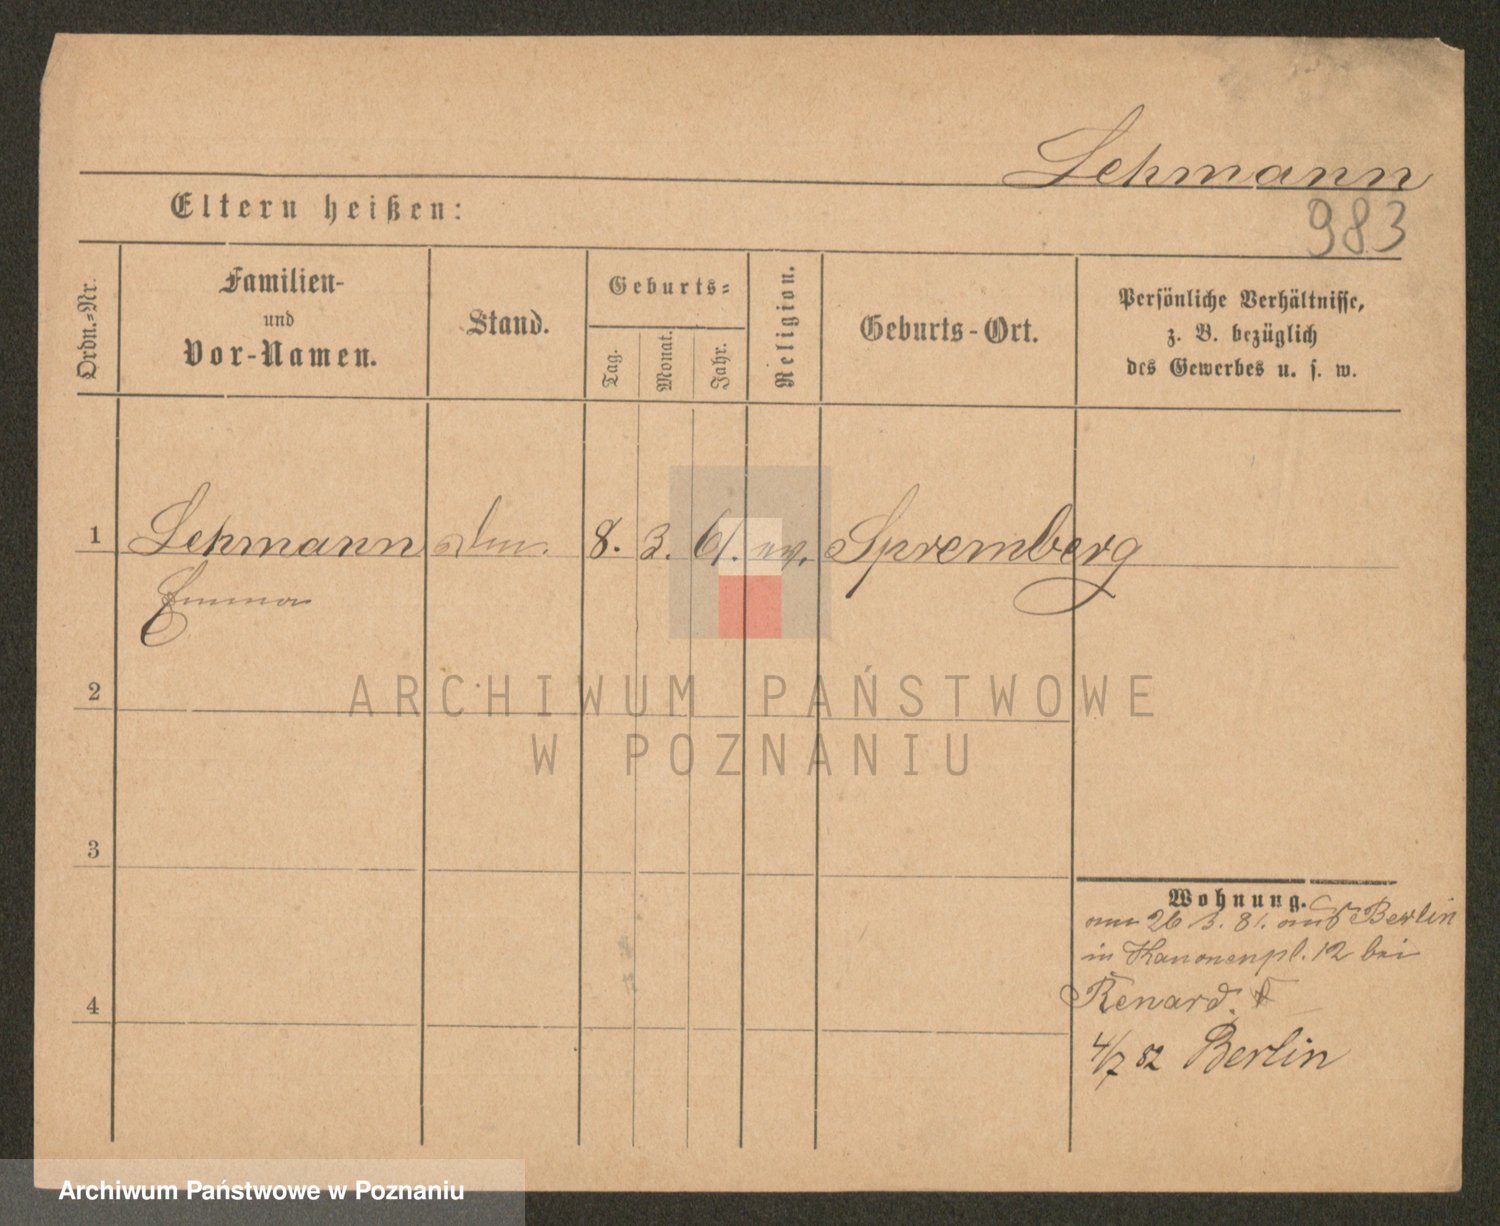 Lehmann
983
Eltern heißen:
Ordn.=Nr.
Familien-
und
Vor-Namen.
Stand.
Geburts=
Tag.
Monat.
Jahr.
Religion.
Geburts-Ort.
Persönliche Verhältnisse,
z. B. bezüglich
des Gewerbes u. s. w.
1 Lehmann 8. 3. 61. ev. Spremberg
Emma
2
3
4
Wohnung.
am 26 3. 81. aus Berlin
in Kanonenpl. 12 bei
Renard.
4/7 82 Berlin
ARCHIWUM PAŃSTWOWE
W POZNANIU
Archiwum Państwowe w Poznaniu